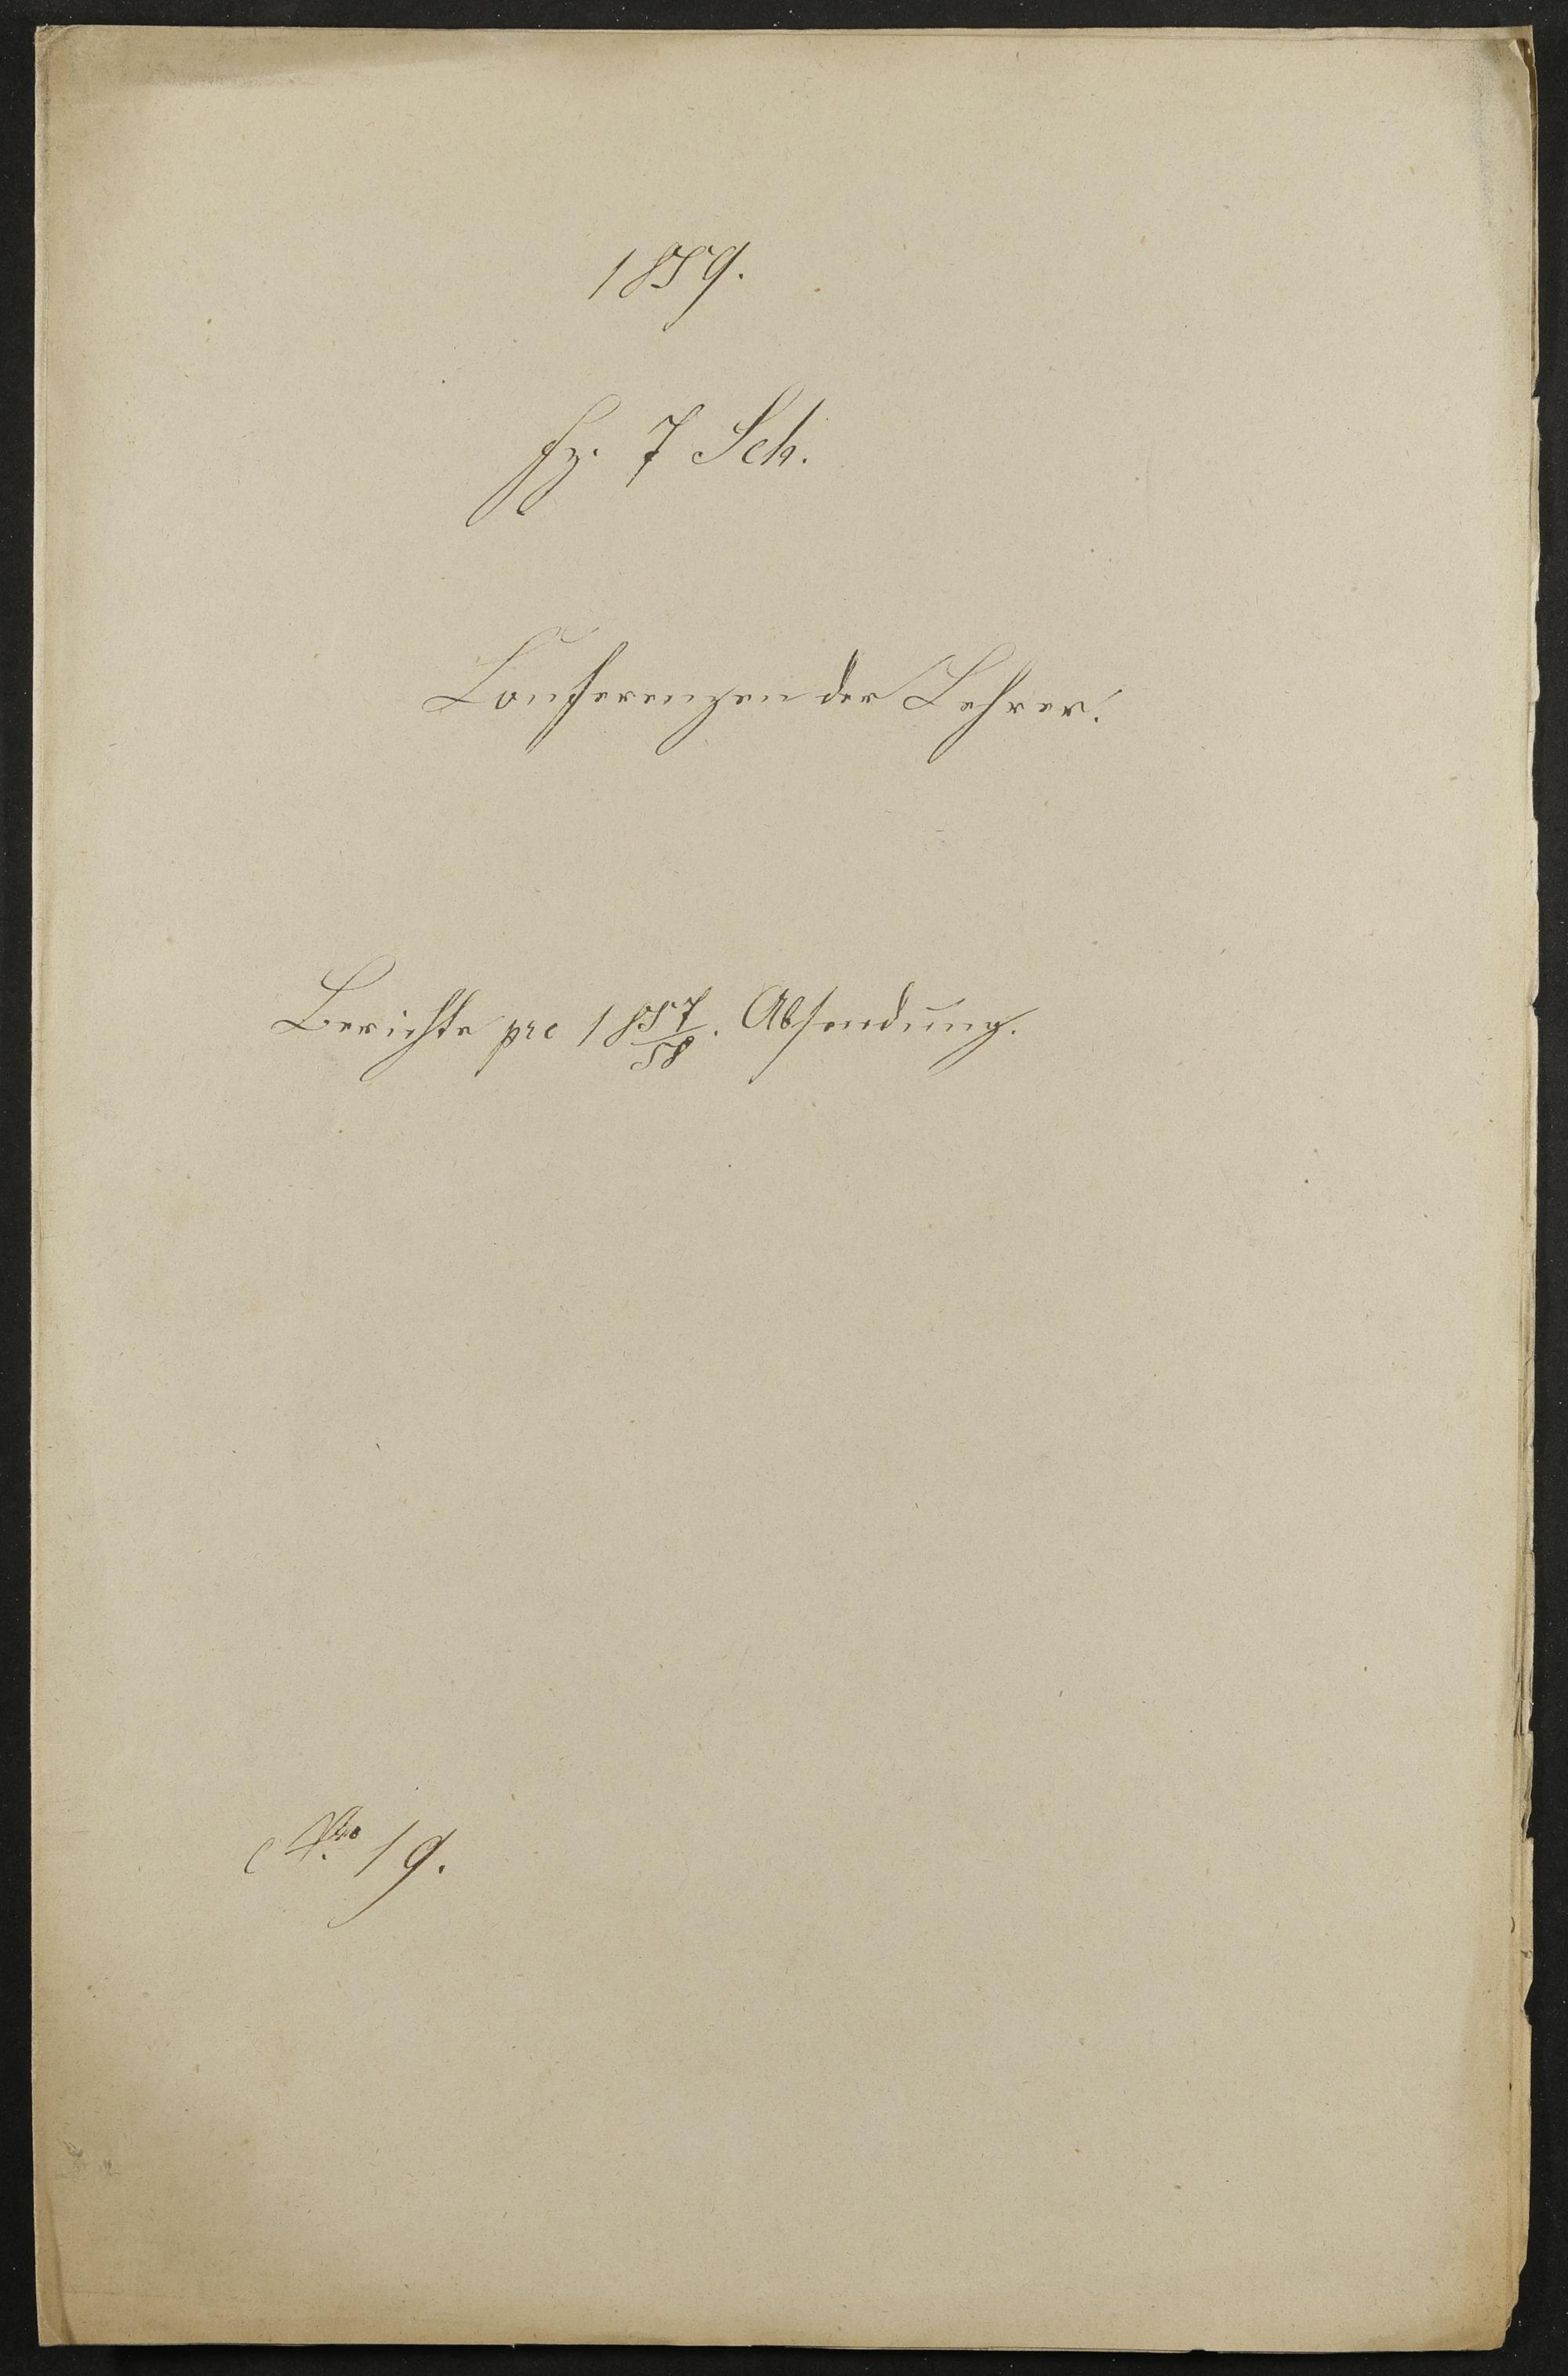 1859.
fz. 7 Sch.
Conferenzen der Lehrer.
Berichte pro 1857/58. Absendung.
Nro 19.